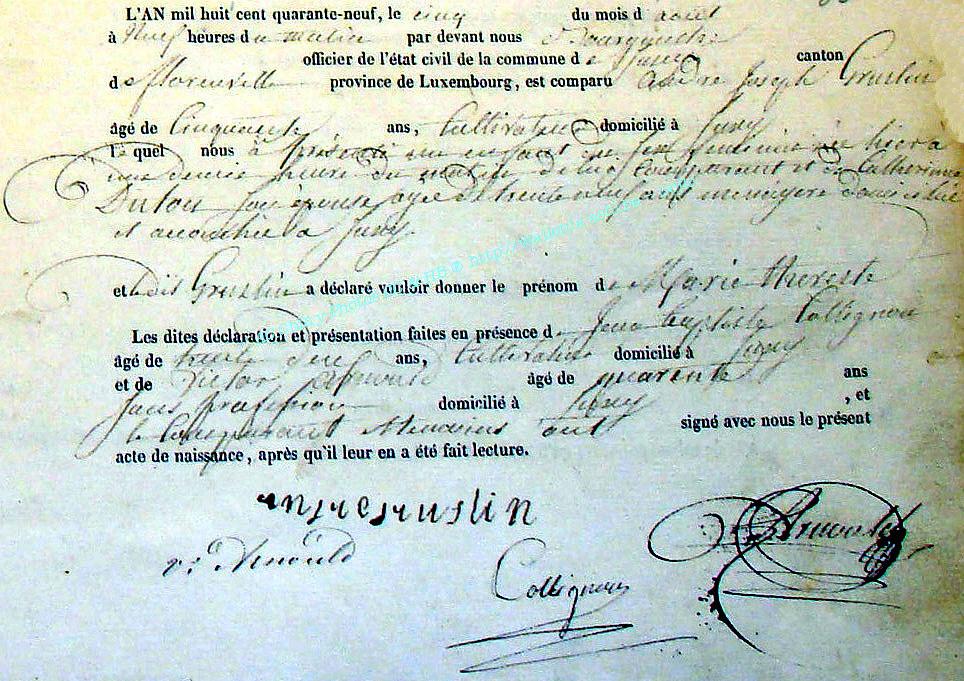 L'AN mil huit cent quarante-neuf, le cinq du mois d'août
à Neuf heures du matin par devant nous
officier de l'état civil de la commune de Suxy canton
de Florenville province de Luxembourg, est comparu André Joseph Gruslin
âgé de Cinquante ans, Cultivateur domicilié à Suxy
lequel nous à présenté un enfant du sexe féminin né hier a
une demie heure du matin de lui Comparant et de Catherine
Dutoy son épouse agée de trente neuf ans menagere domiciliée
et accouchée a Suxy.
et ledit Gruslin a déclaré vouloir donner le prénom de Marie therese
Les dites déclaration et présentation faites en présence de Jean Baptiste Collignon
âgé de trente neuf ans, Cultivateur domicilié à Suxy
et de Victor Arnould âgé de quarente ans
sans profession domicilié à Suxy , et
le Comparant temoins ont signé avec nous le présent
acte de naissance, après qu'il leur en a été fait lecture.
v: Arnould
Collignon